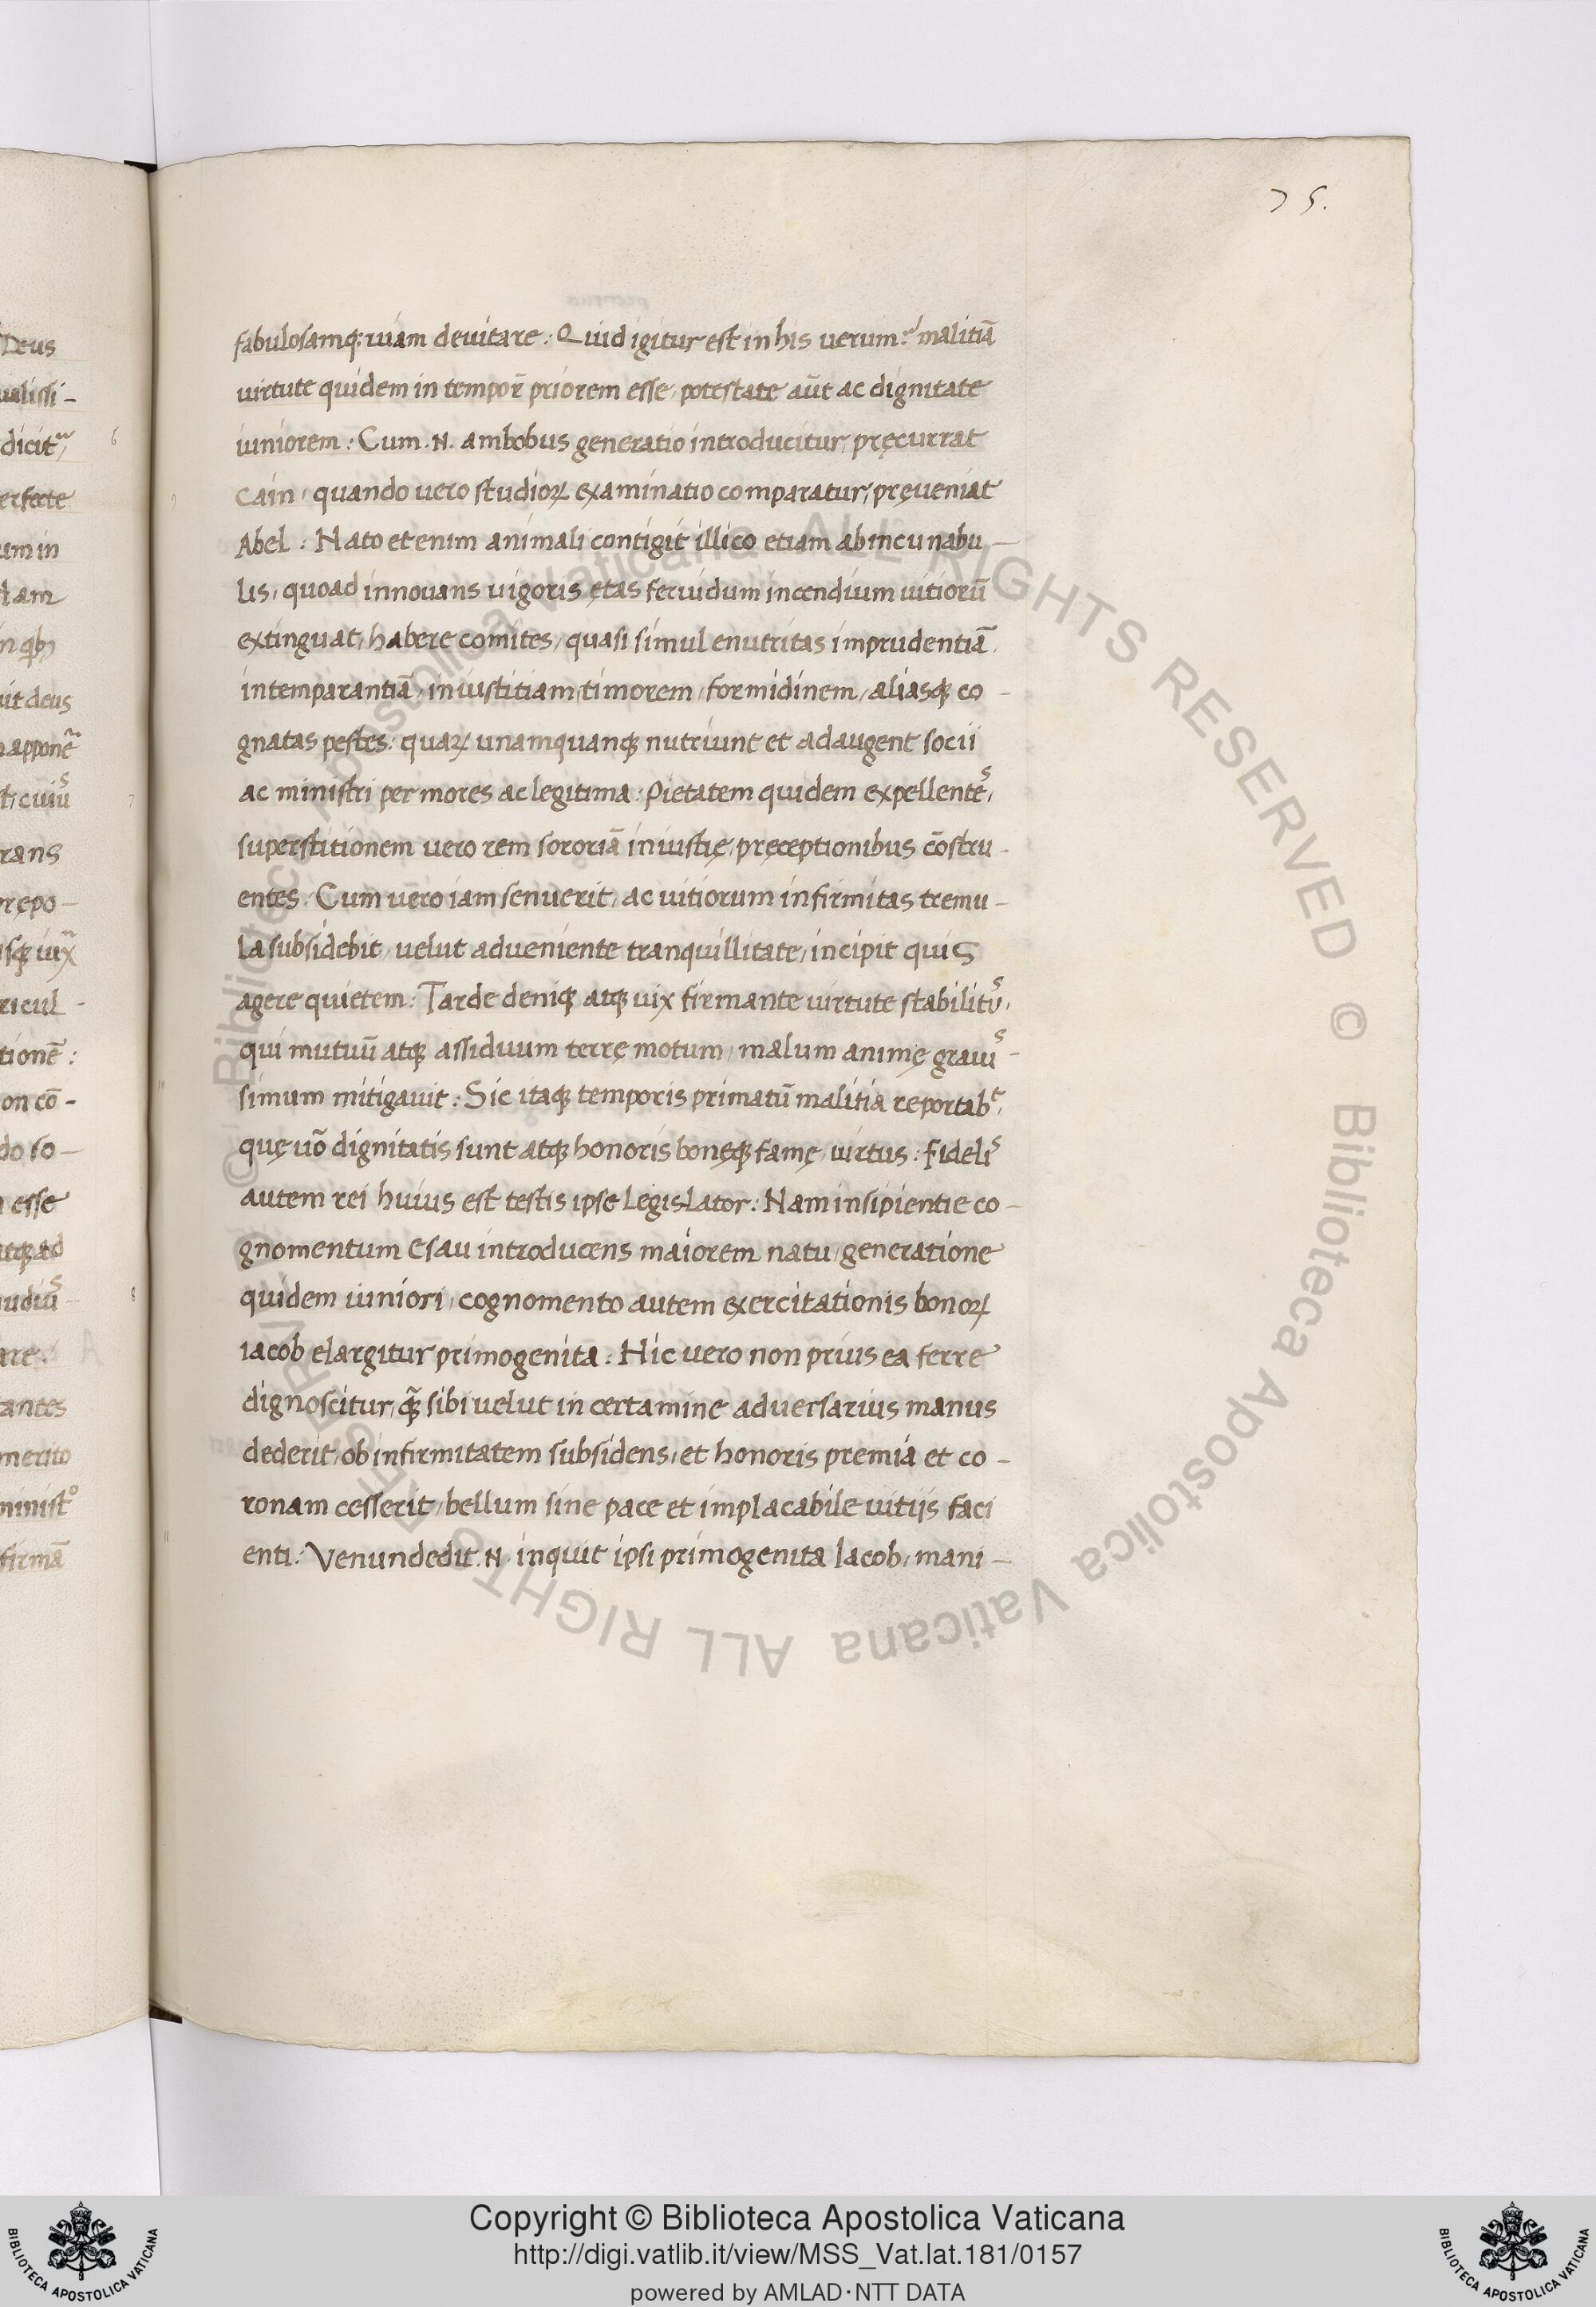 75.
fabulosamq; uiam deuitare: Quid igitur est in his uerum? malitiā
uirtute quidem in tempor̄ priorem esse, potestate aūt ac dignitate
iuniorem: Cum .N. ambobus generatio introducitur, pręcurrat
Cain, quando uero studioꝝ examinatio comparatur, pręueniat
Abel: Nato etenim animali contigit illico etiam ab incunabu-
lis, quoad innouans uigoris ętas feruidum incendium uitiorū
extinguat, habere comites, quasi simul enutritas imprudentiā,
intemparantiā, iniustitiam, timorem, formidinem, aliasqꝫ co-
gnatas pestes: quaꝝ unamquanqꝫ nutriunt et adaugent socii
ac ministri per mores ac legitima: Pietatem quidem expellentes,
superstitionem uero rem sororiā iniustię, pręceptionibus cōstru-
entes: Cum uero iam senuerit, ac uitiorum infirmitas tremu-
la subsidebit, uelut adueniente tranquillitate, incipit quis
agere quietem: Tarde deniqꝫ atqꝫ uix firmante uirtute stabilitus,
qui mutuū atqꝫ assiduum terrę motum, malum animę grauis-
simum mitigauit: Sic itaqꝫ temporis primatū malitia reportabᵗ,
quę uō dignitatis sunt atqꝫ honoris bonęqꝫ famę, uirtus: Fidelis
autem rei huius est testis ipse Legislator: Nam insipientie co-
gnomentum Esau introducens maiorem natu, generatione
quidem iuniori, cognomento autem exercitationis bonoꝝ
iacob elargitur primogenita: Hic uero non prius ea ferre
dignoscitur, qꝫ̄ sibi uelut in certamine aduersarius manus
dederit, ob infirmitatem subsidens, et honoris premia et co-
ronam cesserit, bellum sine pace et implacabile uitijs faci
enti: Venundedit .N. inquit ipsi primogenita Iacob, mani-
Copyright © Biblioteca Apostolica Vaticana
http://digi.vatlib.it/view/MSS_Vat.lat.181/0157
powered by AMLAD·NTT DATA